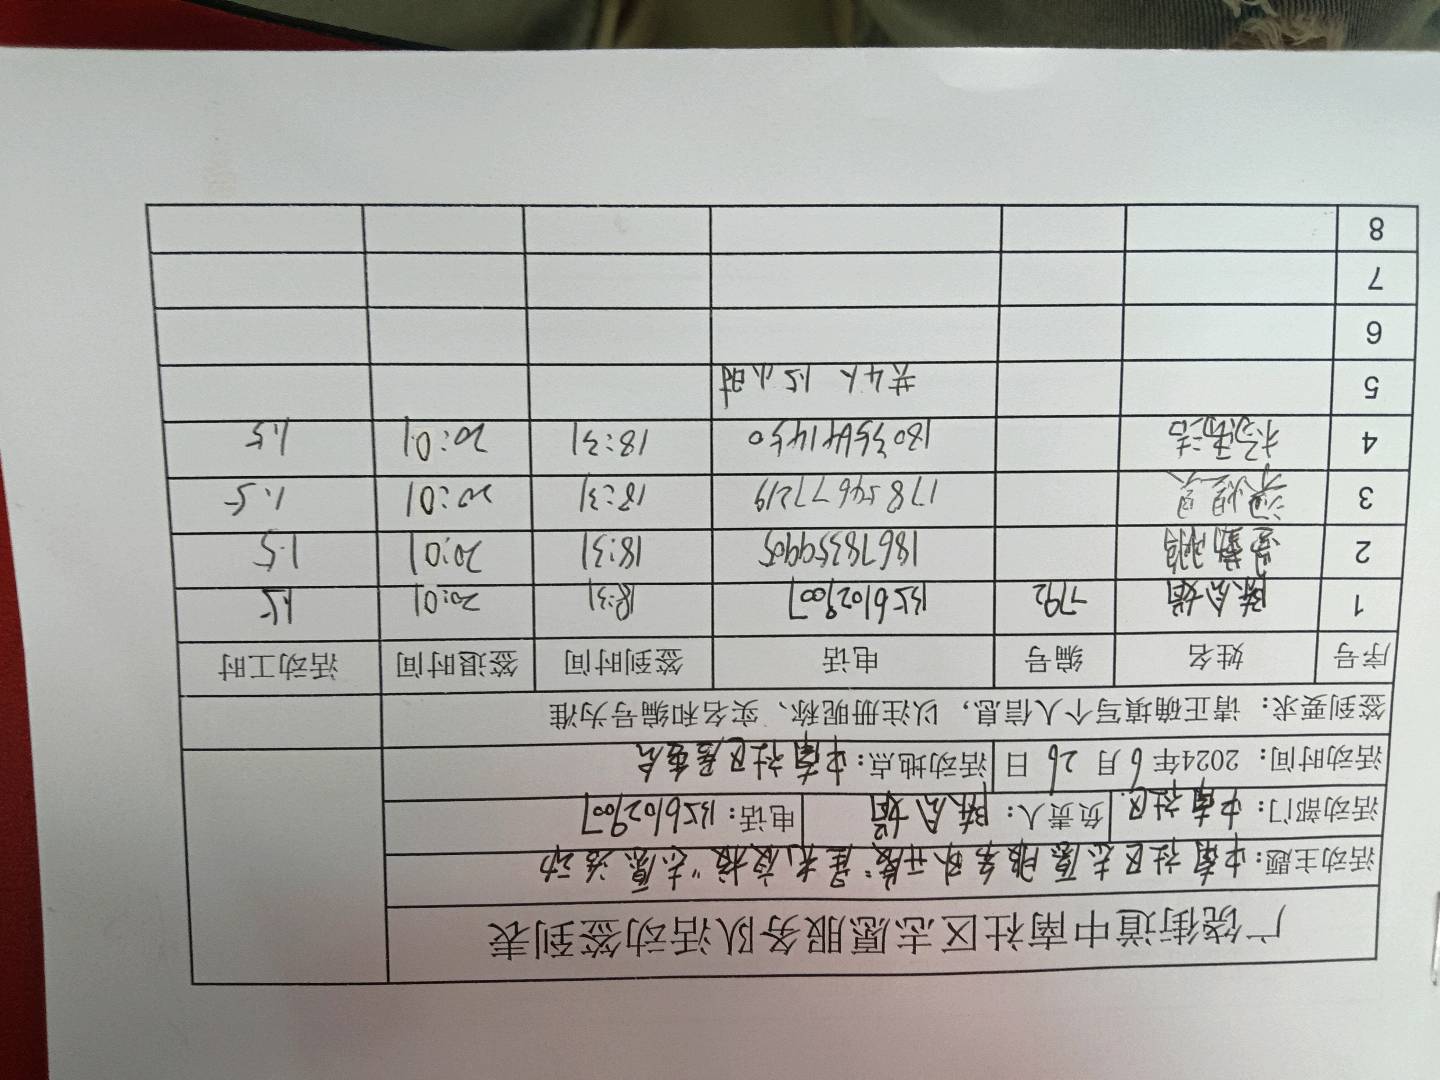 广饶街道中南社区志愿服务队活动签到表
活动主题：中南社区志愿服务队开展"星光夜校"志愿活动
活动部门：中南社区 负责人：陈会娟 电话：13561029007
活动时间：2024年6月26日 活动地点：中南社区居委会
签到要求：请正确填写个人信息，以注册昵称、实名和编号为准
序号 姓名 编号 电话 签到时间 签退时间 活动工时
1 陈会娟 792 13561029007 18:31 20:01 1.5
2 18678359905 18:31 20:01 1.5
3 17854677219 18:31 20:01 1.5
4 18:31 20:01 1.5
5 共4人 1.5小时
6
7
8